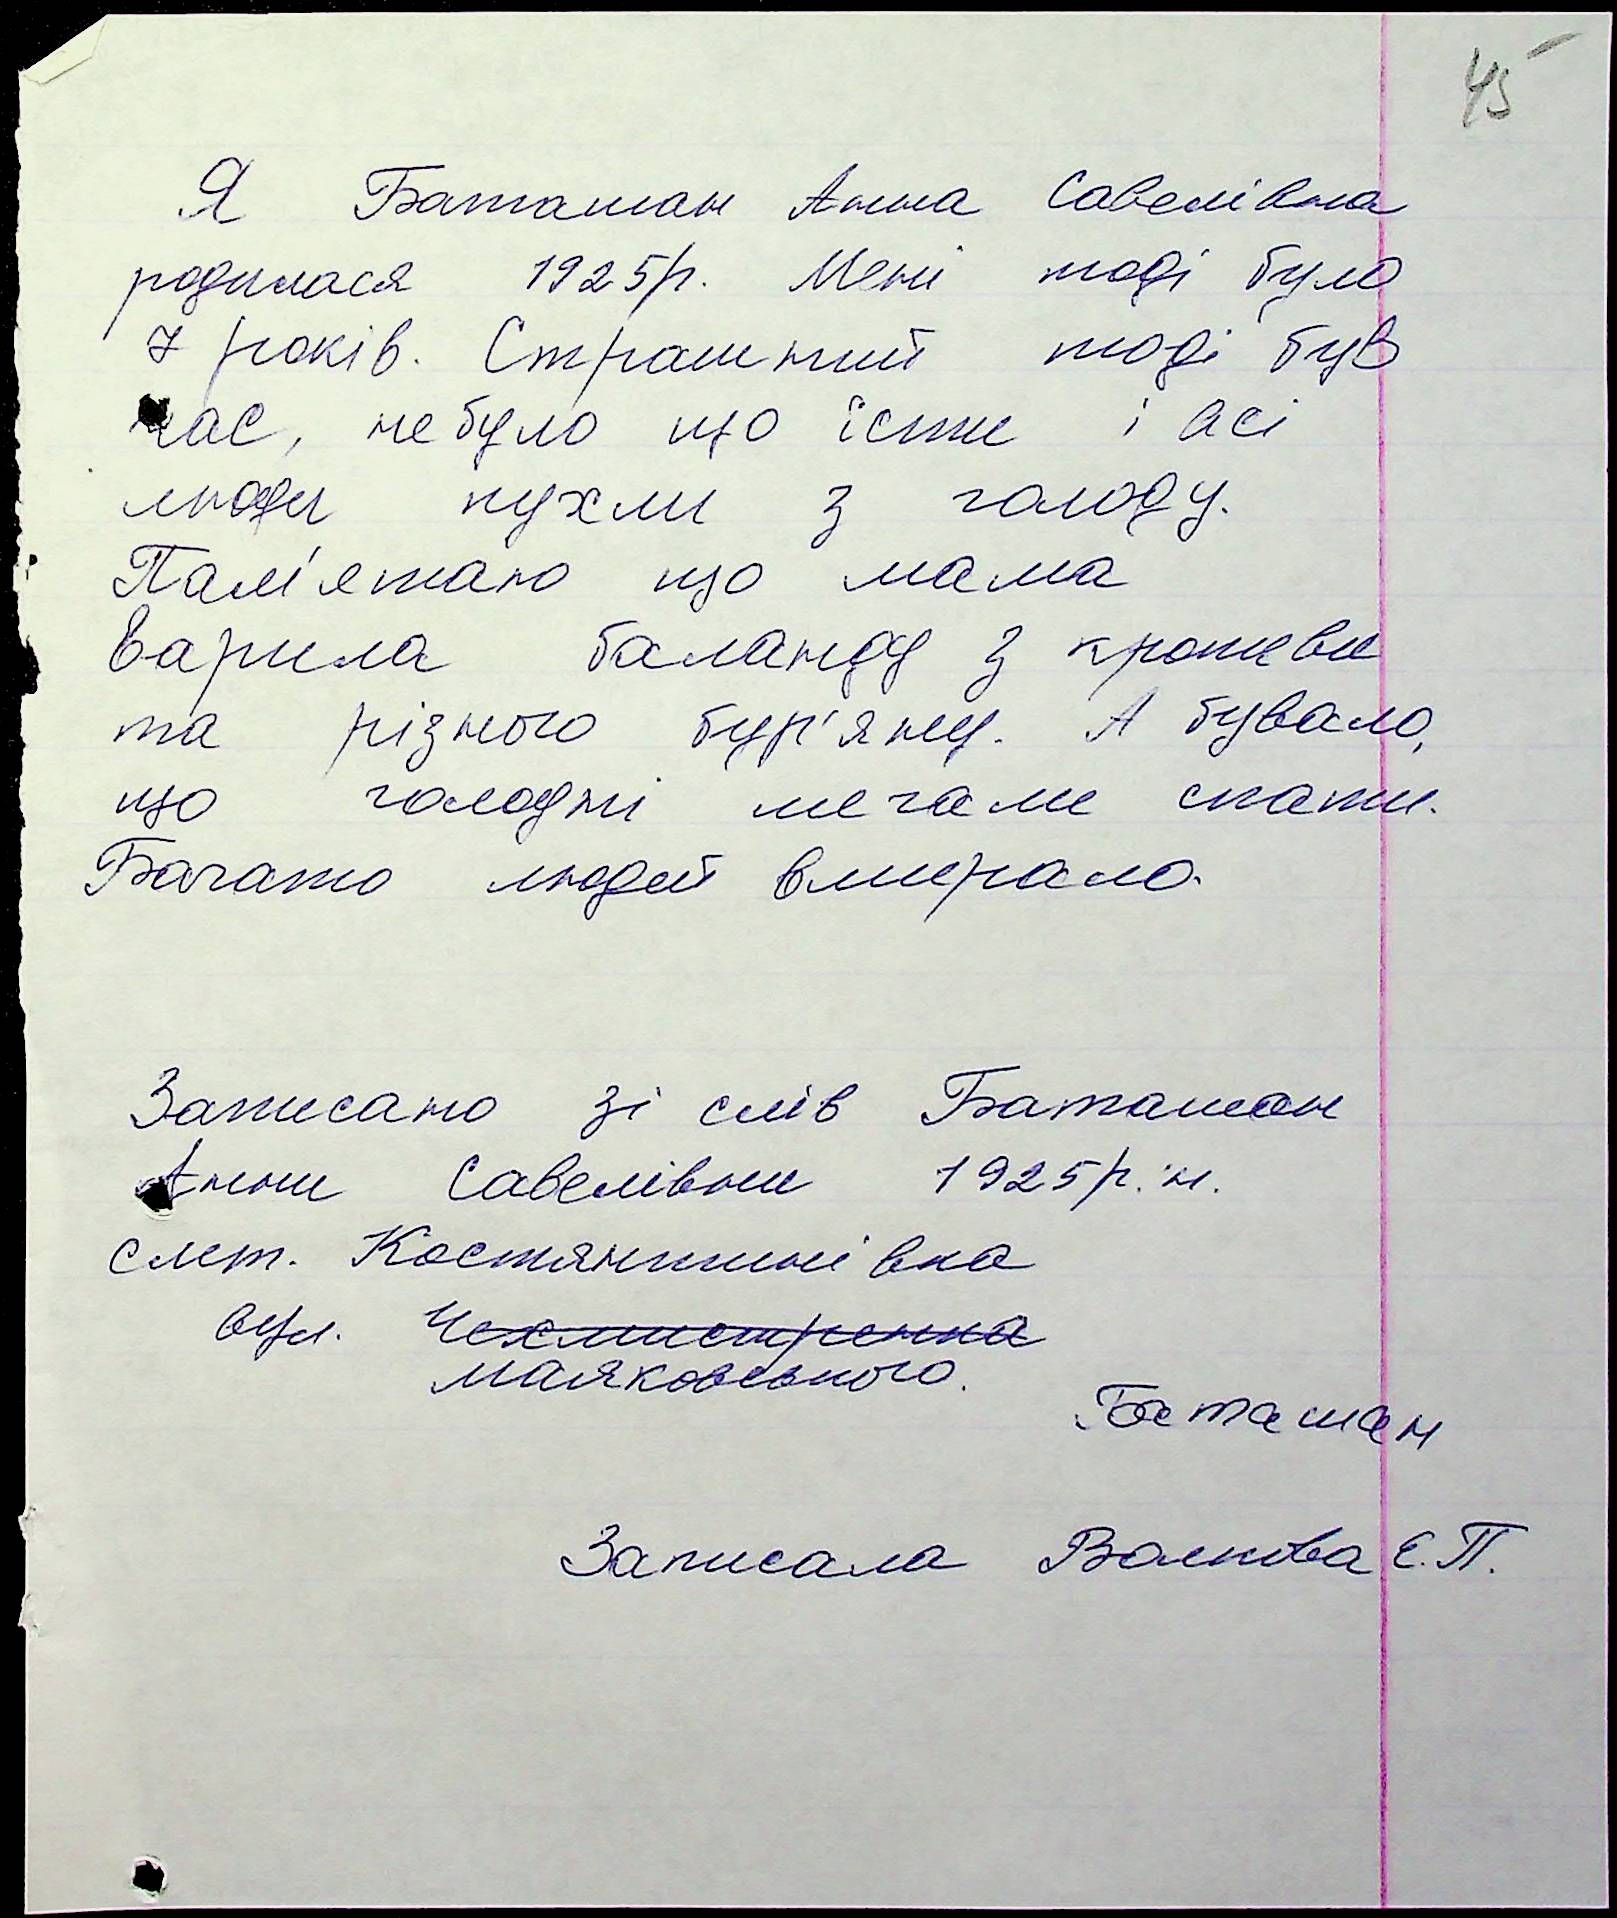 45
Я Баташан Анна Савелівна
родилася 1925р. Мені тоді було
7 років. Страшний тоді був
час, небуло що їсти і всі
люди пухли з голоду.
Пам'ятаю що мама
варила баланду з кропиви
та різного бур'яну. А бувало,
що голодні лягали спати.
Багато людей вмирало.
Записано зі слів Баташан
Анни Савелівни 1925р.н.
смт. Костянтинівка
вул.
Маяковського.
Баташан
Записала Волкова Є.П.